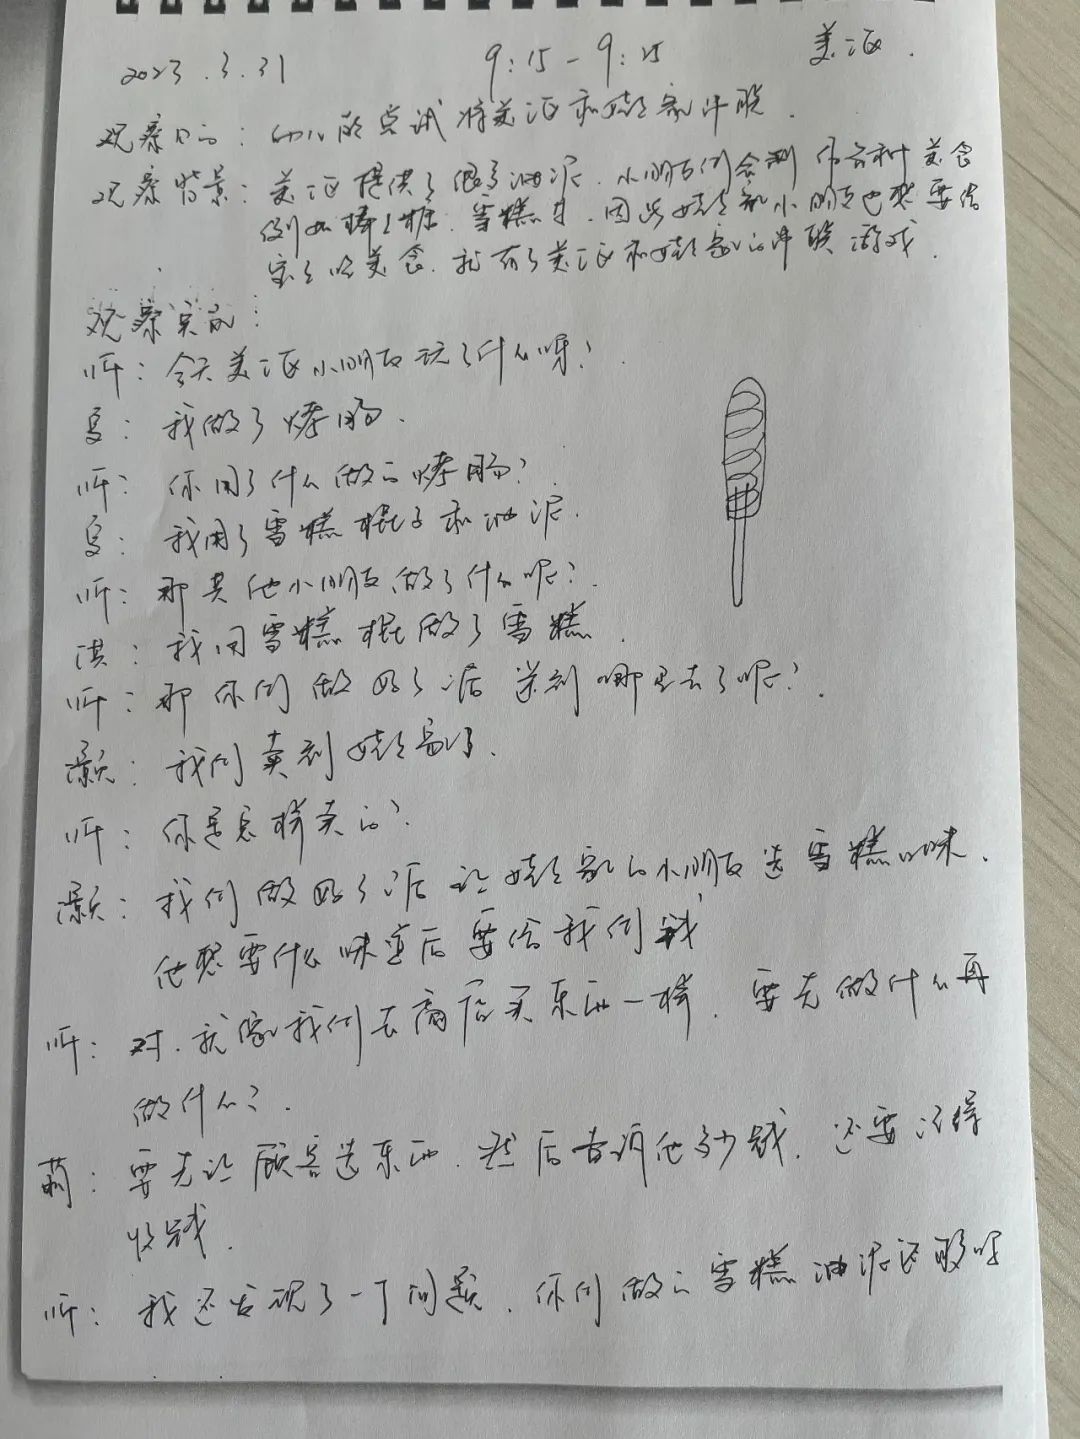 2023.3.31 9:15-9:25 美泥.
观察目的：幼儿能尝试将美泥和娃娃家串联.
观察背景：美泥提供了很多油泥.小朋友们会制作各种美食
例如棒棒糖.雪糕等.因此娃娃家小朋友也想要给
宝宝吃美食.就有了美泥和娃娃家的串联游戏.
观察实录：
听：今天美泥小朋友玩了什么呀？
：我做了烤肠.
听：你用了什么做的烤肠？
：我用了雪糕棍子和油泥.
听：那其他小朋友做了什么呢？
淇：我用雪糕棍做了雪糕.
听：那你们做好了后送到哪里去了呢？
灏：我们卖到娃娃家了.
听：你是怎样卖的？
灏：我们做好了后让娃娃家的小朋友选雪糕口味.
他想要什么味道后要给我们钱
听：对.就像我们去商店买东西一样.要先做什么再
做什么？.
萌：要先让顾客选东西.然后告诉他多少钱.还要记得
收钱.
听：我还发现了一个问题.你们做的雪糕油泥还够吗